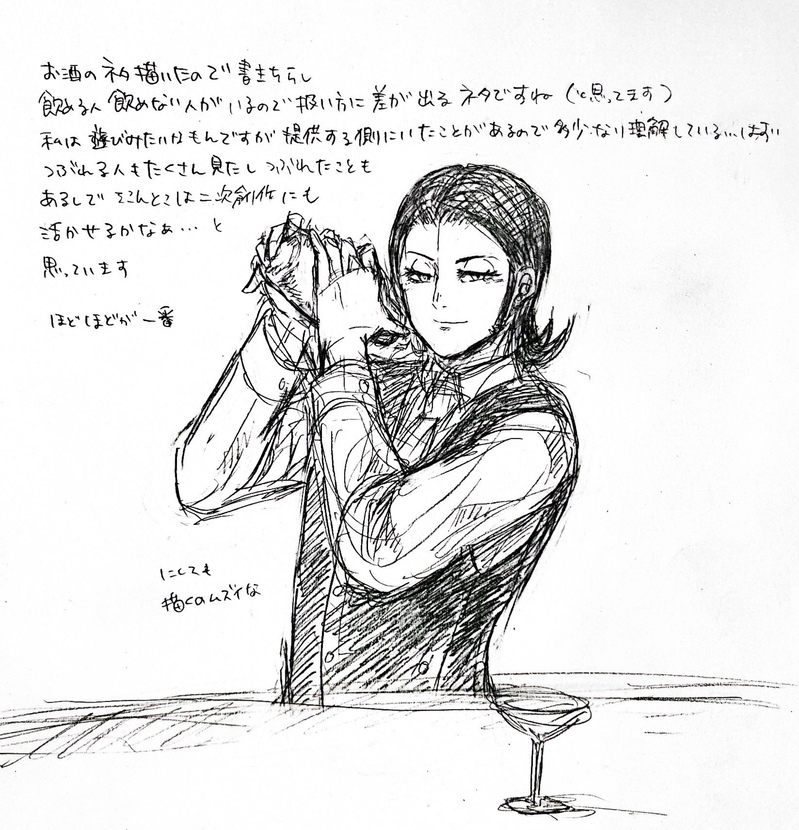 お酒のネタ描いたので書きちらし
飲める人飲めない人がいるので扱い方に差が出るネタですね（と思ってます）
私は遊びみたいなもんですが提供する側にいたことがあるので多少なり理解している…はず
つぶれる人もたくさん見たしつぶれたことも
あるしでそこんとこは二次創作にも
活かせるかなぁ…と
思っています
ほどほどが一番
にしても
描くのムズイな